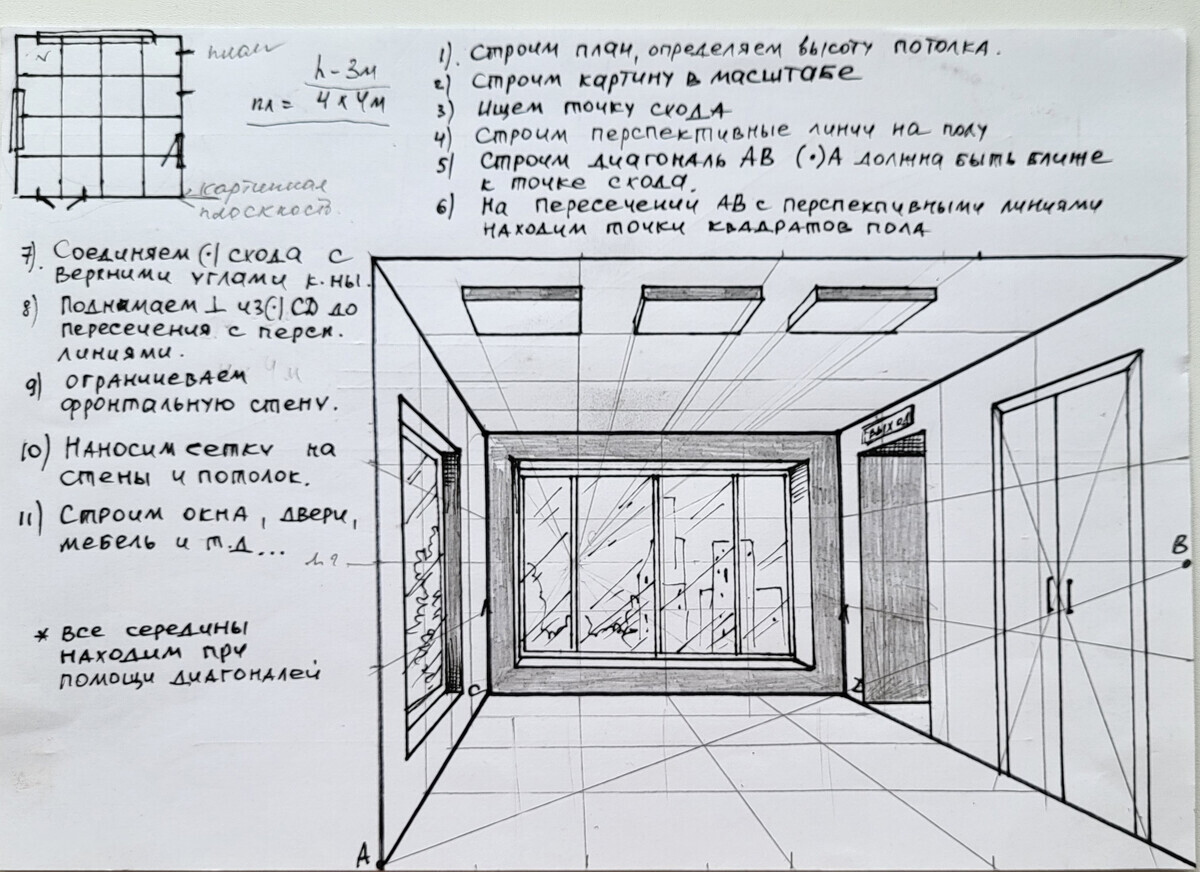 план
h - 3м
пл = 4 x 4м
картинная
плоскость.
1). Строим план, определяем высоту потолка.
2) Строим картину в масштабе
3) Ищем точку схода
4) Строим перспективные линии на полу
5) Строим диагональ АВ (•)А должна быть ближе
к точке схода.
6) На пересечении АВ с перспективными линиями
находим точки квадратов пола
7). Соединяем (•) схода с
верхними углами к-ны.
8) Поднимаем ⊥ из (•) CD до
пересечения с персп.
линиями.
9) ограничеваем
фронтальную стену.
10) Наносим сетку на
стены и потолок.
11) Строим окна, двери,
мебель и т.д...
* Все середины
находим при
помощи диагоналей
ВЫХОД
В
С
D
А